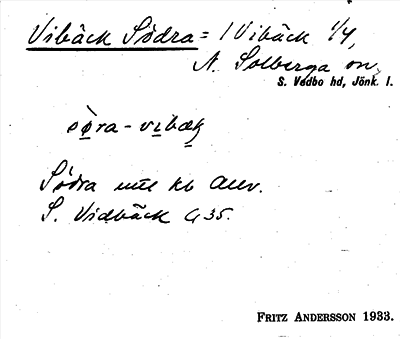 Vibäck Södra = 1 Vibäck 1/4,
N. Solberga sn,
S. Vedbo hd, Jönk. l.
sø̀ra - vibæk
Södra utt. kb Allv.
S. Vidbäck G 35.
FRITZ ANDERSSON 1933.